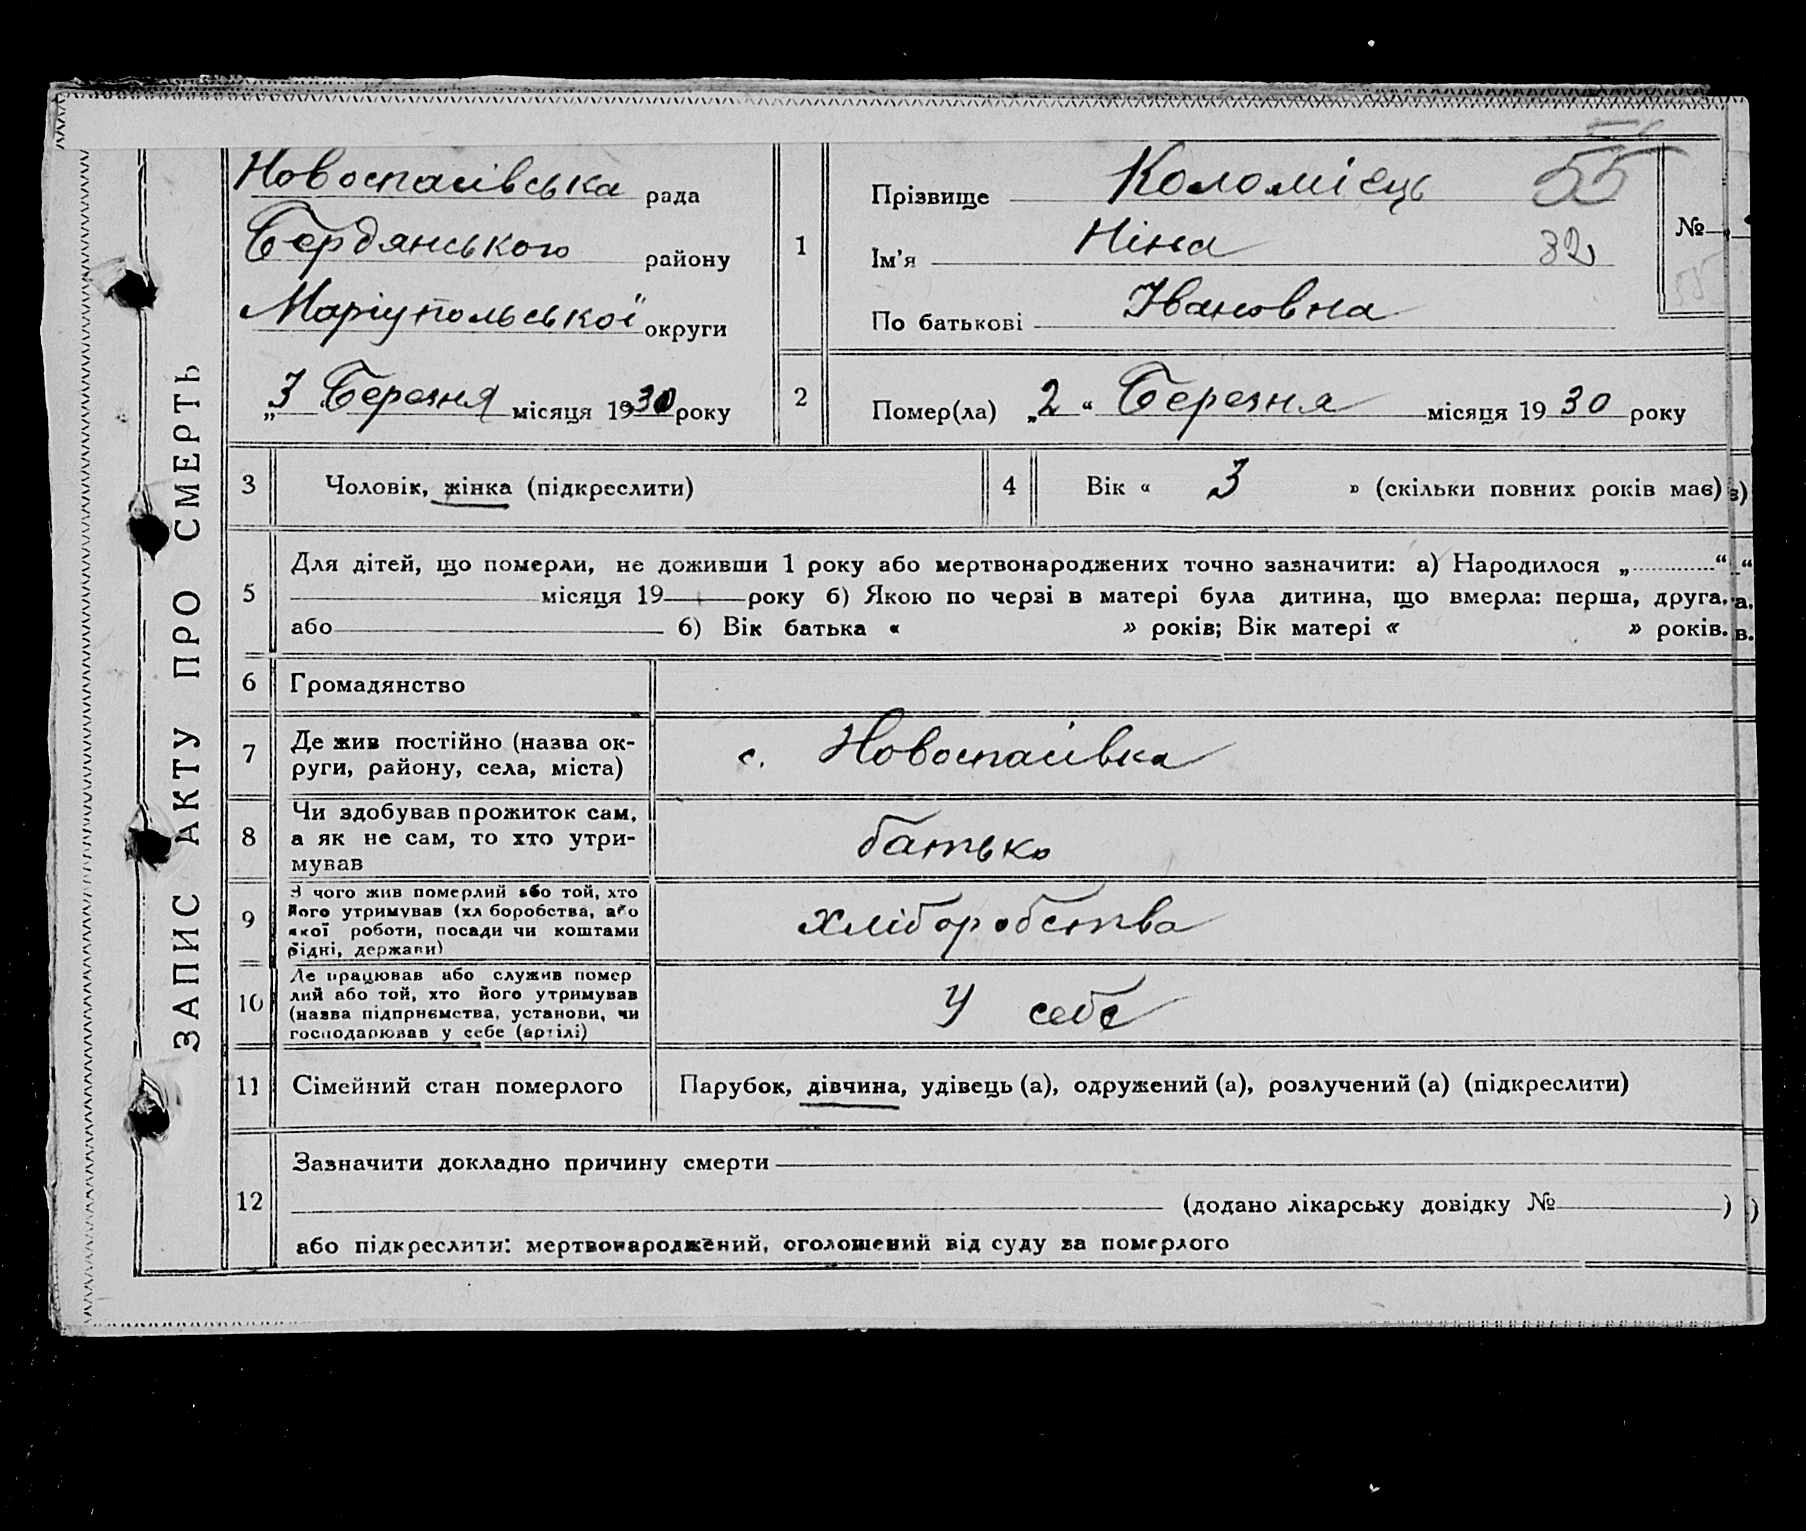 ЗАПИС АКТУ ПРО СМЕРТЬ
Новоспасівська рада
Бердянського району
Маріупольської округи
„3 Березня місяця 1930 року
1
Прізвище Коломієць 55
Ім'я Ніна 32
По батькові Івановна
№
55
2 Помер(ла) „2“ Березня місяця 1930 року
3 Чоловік, жінка (підкреслити)
4 Вік « 3 » (скільки повних років має)
5 Для дітей, що померли, не доживши 1 року або мертвонароджених точно зазначити: а) Народилося „ “
місяця 19 року б) Якою по черзі в матері була дитина, що вмерла: перша, друга,
або б) Вік батька « » років; Вік матері « » років.
6 Громадянство
7 Де жив постійно (назва ок-
руги, району, села, міста)
с. Новоспасівка
8 Чи здобував прожиток сам,
а як не сам, то хто утри-
мував
батько
9 З чого жив померлий або той, хто
його утримував (хліборобства, або
якої роботи, посади чи коштами
рідні, держави)
хліборобства
10 Де працював або служив помер
лий або той, хто його утримував
(назва підприємства, установи, чи
господарював у себе (артілі)
У себе
11 Сімейний стан померлого Парубок, дівчина, удівець (а), одружений (а), розлучений (а) (підкреслити)
12 Зазначити докладно причину смерти
(додано лікарську довідку № )
або підкреслити: мертвонароджений, оголошений від суду за померлого